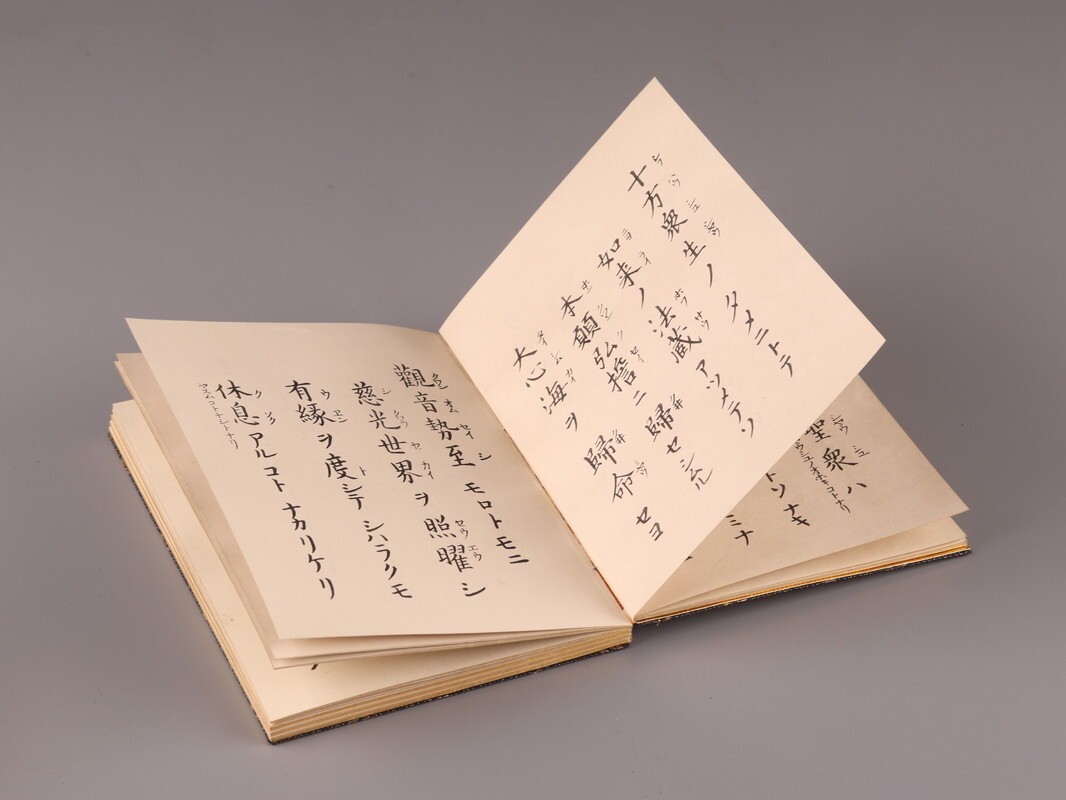 聖衆ハ
トソナキ
ミナ
十方衆生ノタメニトテ
如来ノ法蔵アツメテソ
本願弘誓ニ歸セシムル
大心海ヲ歸命セヨ
觀音勢至モロトモニ
慈光世界ヲ照曜シ
有縁ヲ度シテシハラクモ
休息アルコトナカリケリ
ヤスムコトナシトナリ